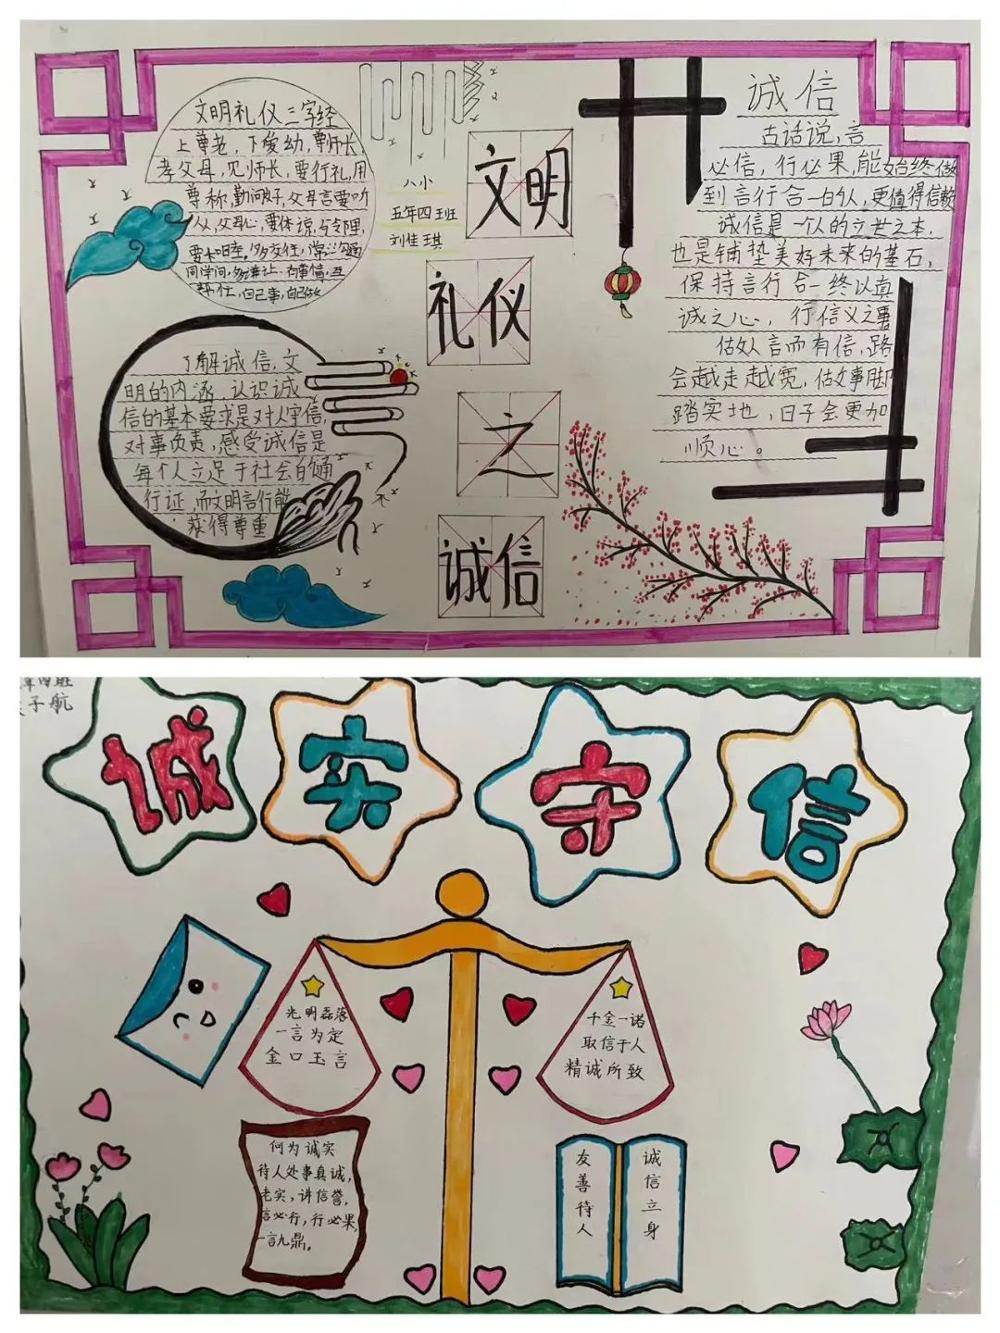 文明礼仪三字经
上尊老,下爱幼,尊师长,
孝父母,见师长,要行礼,用
尊称,勤问好,父母言要听
从,父母心,要体谅,与邻里,
要和睦,多交往,常沟通
同学间,多谦让,有事情,互
帮忙,自己事,自己做
八小
五年四班
刘佳琪
文明
礼仪
之
诚信
诚信
古话说,言
必信,行必果,能始终做
到言行合一的人,更值得信赖
诚信是一个人的立世之本,
也是铺垫美好未来的基石,
保持言行合一终以真
诚之心,行信义之事
做人言而有信,路
会越走越宽,做事脚
踏实地,日子会更加
顺心。
了解诚信,文
明的内涵,认识诚
信的基本要求是对人守信,
对事负责,感受诚信是
每个人立足于社会的通
行证,而文明言行能
获得尊重
子航
诚实守信
光明磊落
一言为定
金口玉言
千金一诺
取信于人
精诚所致
何为诚实
待人处事真诚,
老实,讲信誉,
言必行,行必果,
一言九鼎。
友善待人
诚信立身